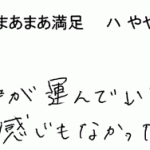 まあまあ満足 ハ やや
が運んでい
感じもなかった